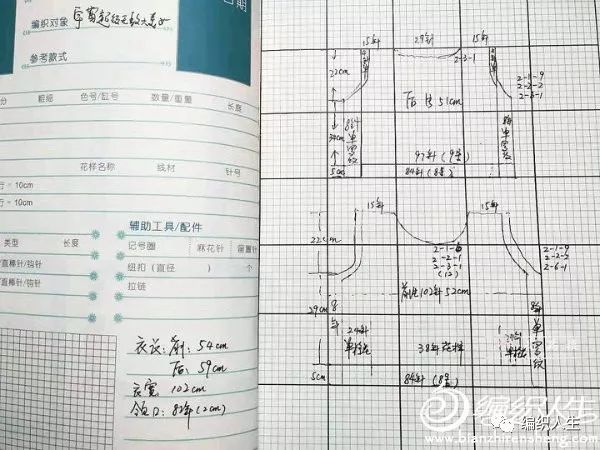 日期
编织对象
参考款式
分 粗细 色号/缸号 数量/重量 长度
花样名称 线材 针号
行 = 10cm
行 = 10cm
类型 长度
直棒针/钩针
直棒针/钩针
辅助工具/配件
记号圈 麻花针 留置针
纽扣（直径 ） 个
拉链
衣长: 前: 54cm
后: 59cm
衣宽 102cm
领口: 82针(2cm)
15针 29针 15针
2-3-1
22cm
2-1-9
2-2-2
2-3-1
后片 51cm
34cm
8针单字纹
97针(9号)
5cm
84针(8号)
15针 15针
22cm
2-1-6
2-2-1
2-3-1
(12)
2-1-9
2-2-2
2-6-1
102针52cm
29cm
8针
单字纹
24针
38针花样
5cm
84针(8号)
编织人生
www.bianzhirensheng.com
编织人生